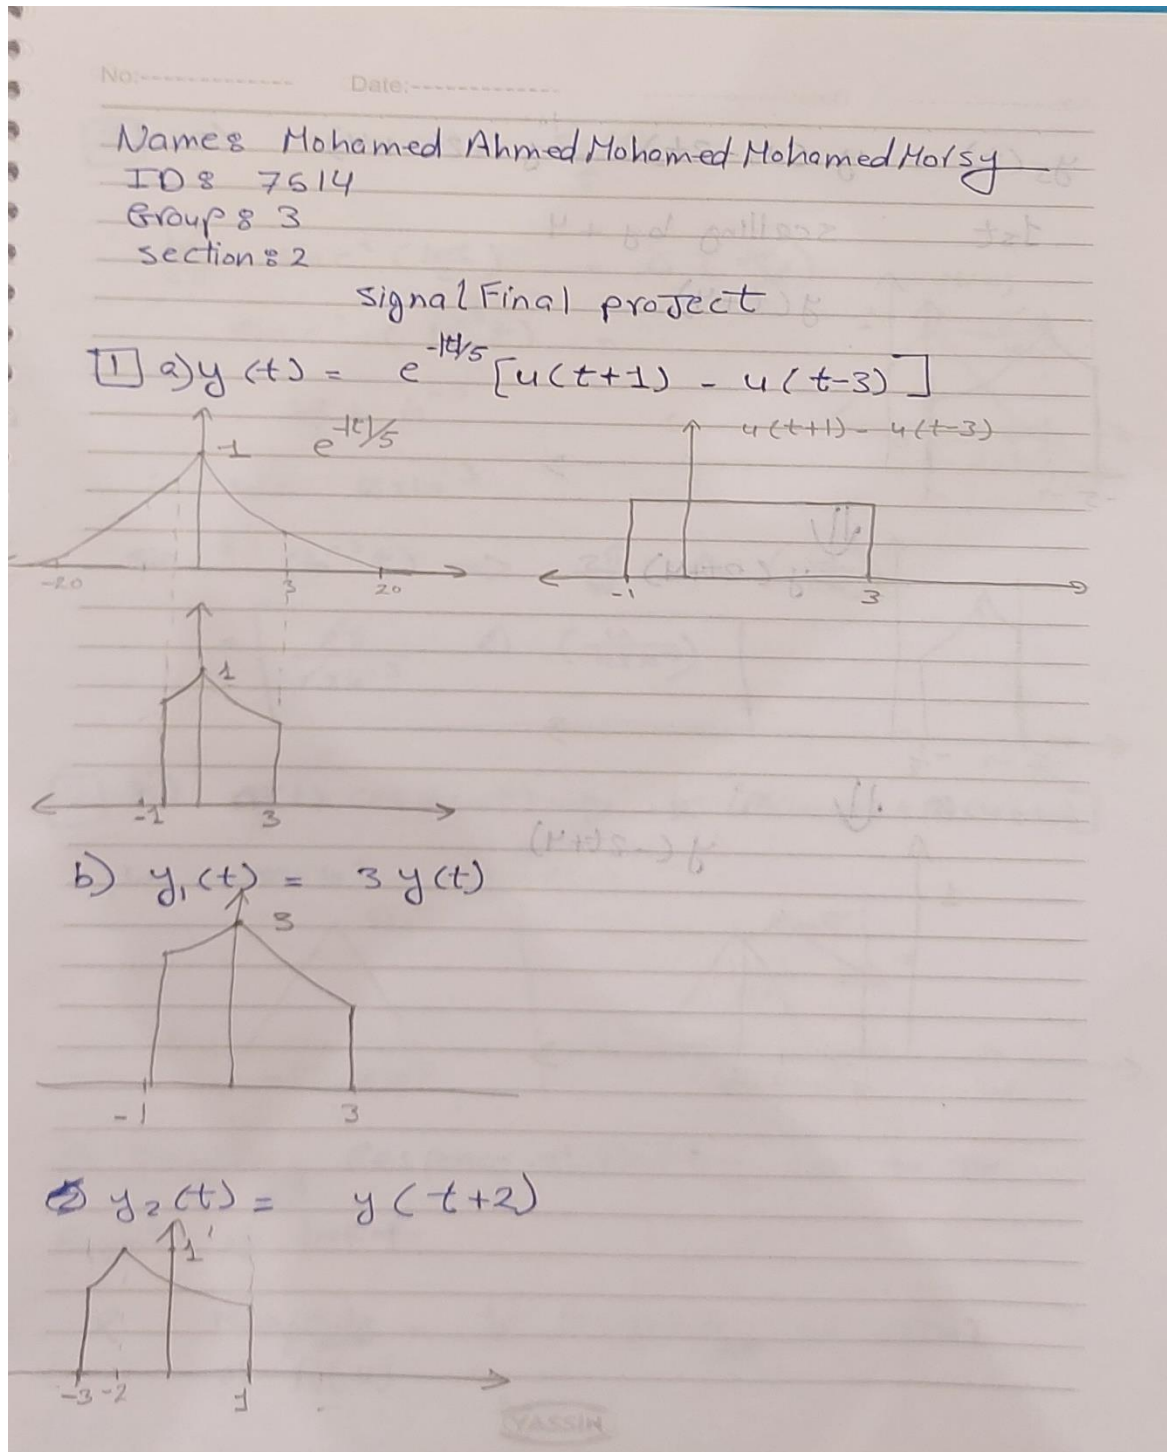 No:-------------- Date:--------------
Name: Mohamed Ahmed Mohamed Mohamed Morsy
ID: 7614
Group: 3
section: 2
signal Final project
1 a) y(t) = e^{-|t|/5} [u(t+1) - u(t-3)]
1 e^{-|t|/5} u(t+1) - u(t-3)
-20 3 20 -1 3
1
-1 3
b) y₁(t) = 3 y(t)
3
-1 3
y₂(t) = y(t+2)
1
-3 -2 1
YASSIN